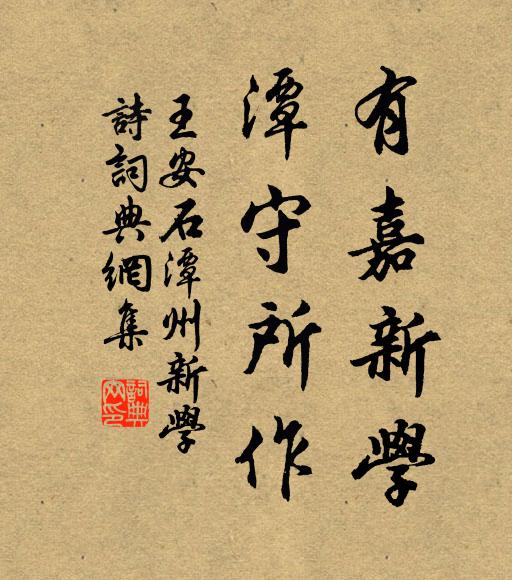 有嘉新學
潭守所作
王安石潭州新學
詩詞典網集